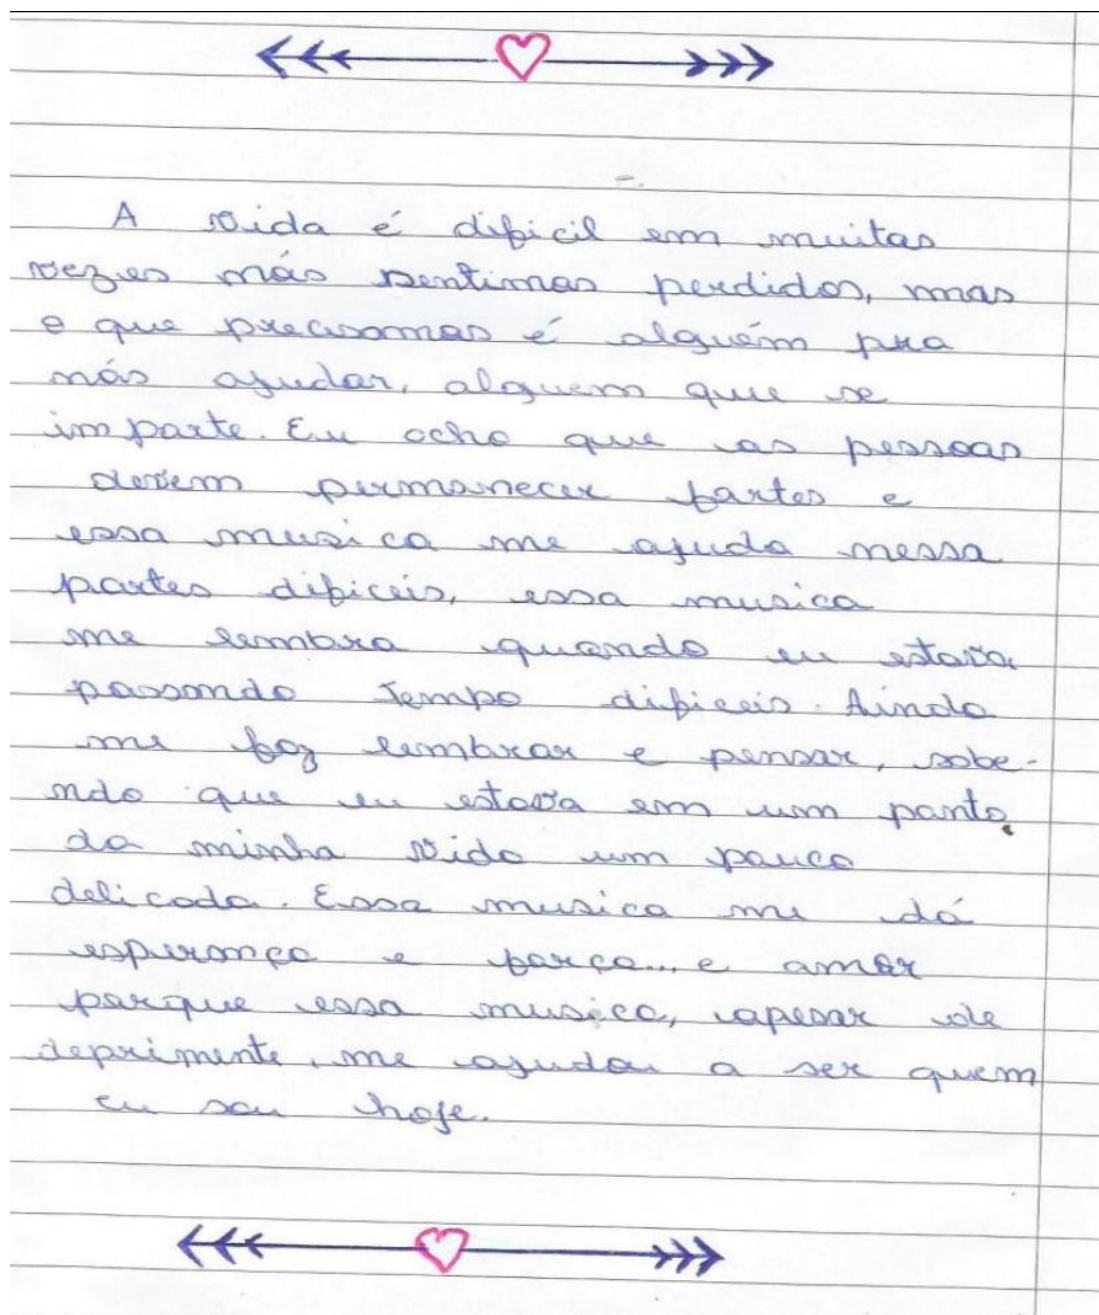 A vida é dificil em muitas
vezes nós sentimos perdidos, mas
o que precisamos é alguém pra
nós ajudar, alguem que se
importe. Eu acho que as pessoas
devem permanecer fortes e
essa musica me ajuda nessa
partes dificeis, essa musica
me lembra quando eu estava
passando tempo dificeis. Ainda
me faz lembrar e pensar, sabe-
ndo que eu estava em um ponto
da minha vida um pouco
delicada. Essa musica me dá
esperança e força... e amor
porque essa musica, apesar de
deprimente, me ajudou a ser quem
eu sou hoje.